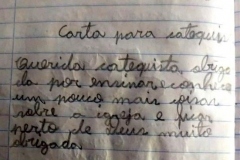 Carta para catequis
Querida catequista obriga
da por ensinar e conhece
um pouco mais coisas
sobre a igreja e ficar
perto de Deus muito
obrigada